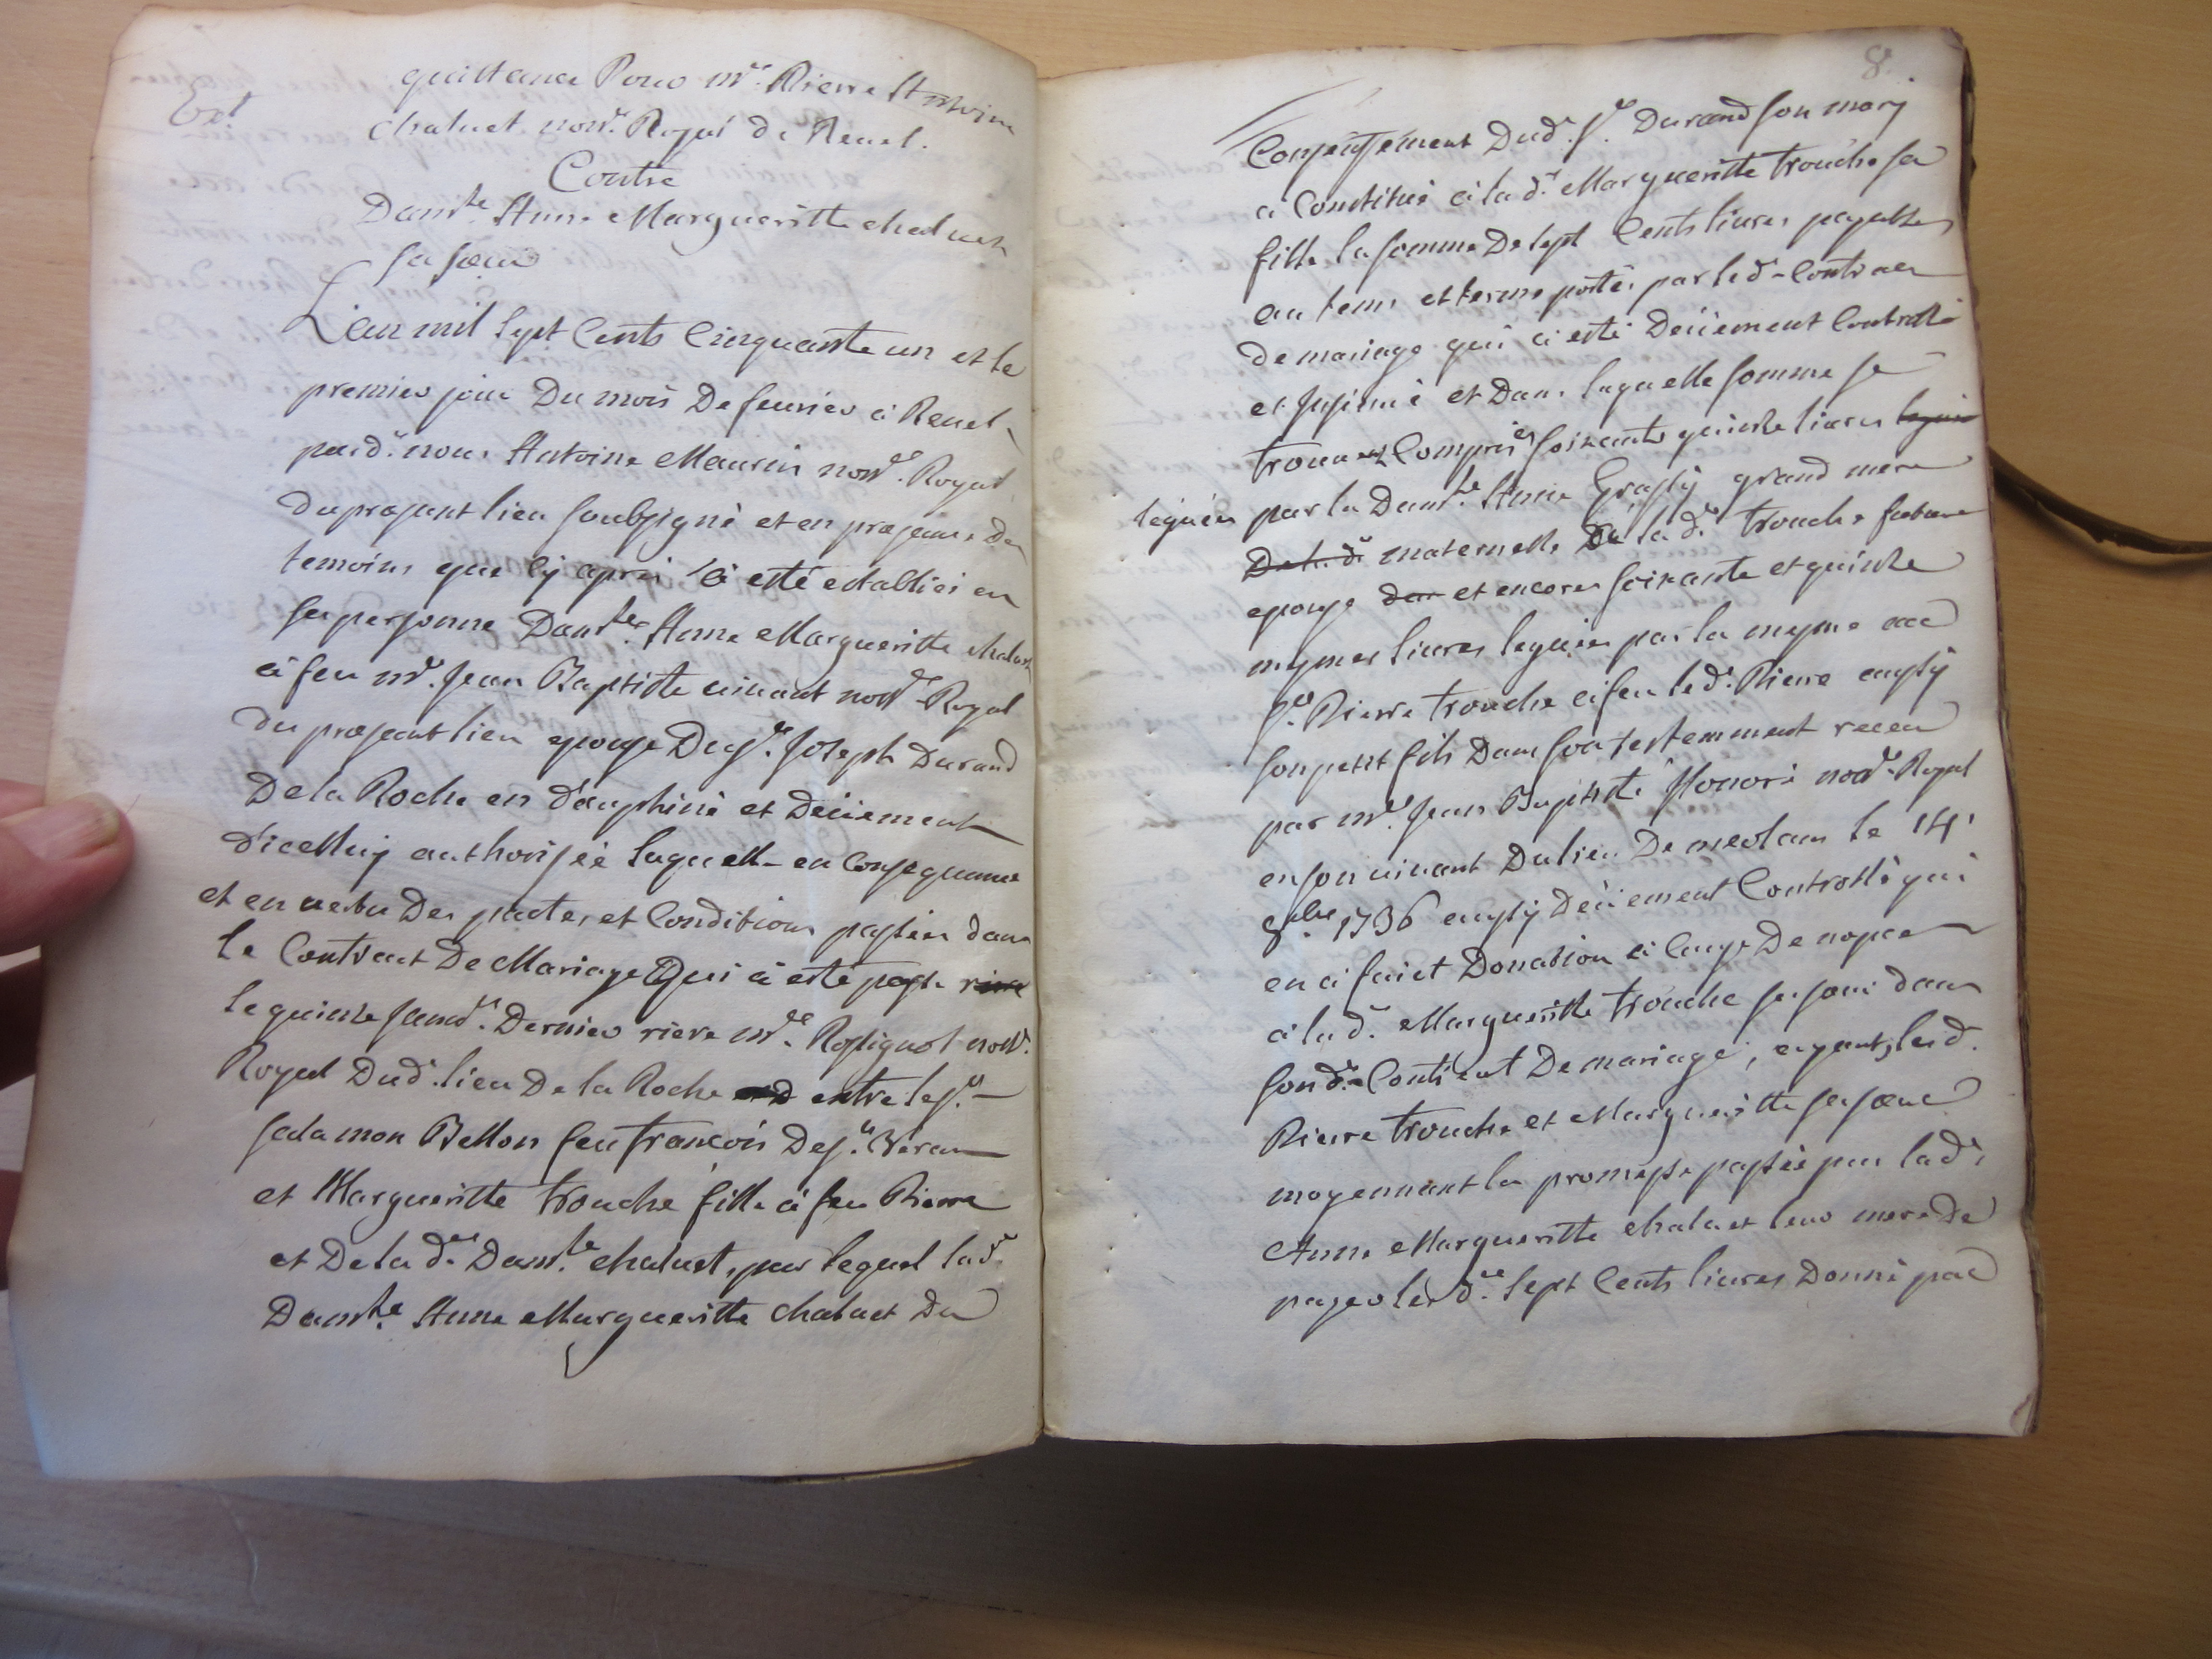 Ext
quittance Pour mre. Pierre Antoine
Chaluet nore. Royal de Reuel.
Contre
Damlle. Anne Margueritte chaluet
sa sœur
L'an mil sept Cents Cinquante un et le
premier jour Du mois De feurier à Reuel
pard.t nous Antoine Maurin nore. Royal
du prezant lieu soubzigné et en prezance des
temoins que cy apres à esté establiei en
sa personne Damlle. Anne Margueritte chaluet
à feu mre. Jean Baptiste uiuant nore. Royal
du prezant lieu epouze Du sr. Joseph Durand
De la Roche en dauphiné et Deüement
d'icelluy authorizée laquelle en Consequance
et en uertu Des pactes, et Conditions passées dans
le Contract De Mariage Qui à esté passé riere
le quinze janvr. Dernier riere mre. Rossignol nore.
Royal Dud. lieu De la Roche entre le sr.
Salamon Bellon feu francois De st. Veran
et Margueritte trouche fille à feu Pierre
et De la de. Damlle. chaluet, par lequel lade.
Damlle. Anne Margueritte chaluet Du
8.
Consentement Dud. sr. Durand son mary
a Constitué à la de. Margueritte trouche sa
fille la somme De sept Cents liures payables
au tems et terme portés par led. Contract
de mariage qui à esté Deüement Controllé
et Insinué et Dans laquelle somme se
trouuent Comprises soixante quinze liures leguée
leguées par la Damlle. Anne grand mere
De la de. maternelle De la de. trouche future
epouze et encores soixante et quinze
mesmes liures leguées par la mesme au
sr. Pierre trouche à feu led. Pierre aussy
son petit fils Dans son testemment receu
par mre. Jean Baptiste Honoré nore. Royal
en son uiuant Du lieu De meolans le 14e
8bre. 1736 aussy Deüement Controllé qui
en à faict Donation à Cauze De nopces
à la de. Margueritte trouche sa sœur dans
sond. Contract De mariage, ayant, lesd.
Pierre trouche et Margueritte sa sœur
moyennant la promesse passée par lade.
Anne Margueritte chaluet leur mere De
payer lesde. sept Cents liures Donné par